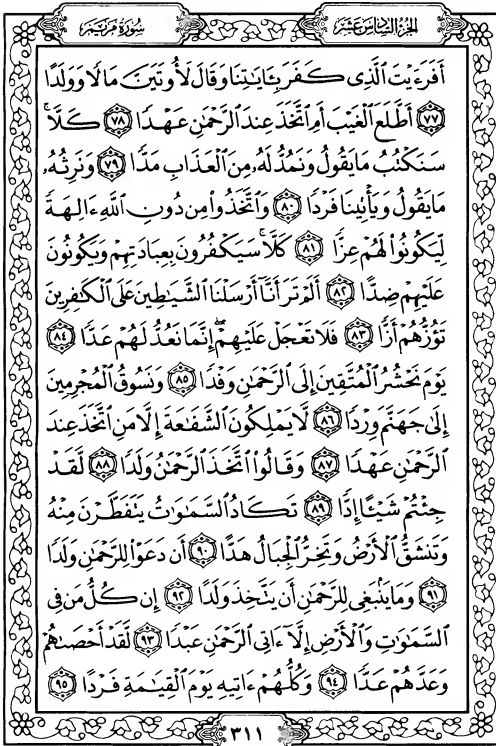 الجزء السادس عشر
سورة مريم
أَفَرَءَيْتَ ٱلَّذِى كَفَرَ بِـَٔايَٰتِنَا وَقَالَ لَأُوتَيَنَّ مَالًا وَوَلَدًا
﴿٧٧﴾ أَطَّلَعَ ٱلْغَيْبَ أَمِ ٱتَّخَذَ عِندَ ٱلرَّحْمَٰنِ عَهْدًا ﴿٧٨﴾ كَلَّا ۚ
سَنَكْتُبُ مَا يَقُولُ وَنَمُدُّ لَهُۥ مِنَ ٱلْعَذَابِ مَدًّا ﴿٧٩﴾ وَنَرِثُهُۥ
مَا يَقُولُ وَيَأْتِينَا فَرْدًا ﴿٨٠﴾ وَٱتَّخَذُوا۟ مِن دُونِ ٱللَّهِ ءَالِهَةً
لِّيَكُونُوا۟ لَهُمْ عِزًّا ﴿٨١﴾ كَلَّا ۚ سَيَكْفُرُونَ بِعِبَادَتِهِمْ وَيَكُونُونَ
عَلَيْهِمْ ضِدًّا ﴿٨٢﴾ أَلَمْ تَرَ أَنَّآ أَرْسَلْنَا ٱلشَّيَٰطِينَ عَلَى ٱلْكَٰفِرِينَ
تَؤُزُّهُمْ أَزًّا ﴿٨٣﴾ فَلَا تَعْجَلْ عَلَيْهِمْ ۖ إِنَّمَا نَعُدُّ لَهُمْ عَدًّا ﴿٨٤﴾
يَوْمَ نَحْشُرُ ٱلْمُتَّقِينَ إِلَى ٱلرَّحْمَٰنِ وَفْدًا ﴿٨٥﴾ وَنَسُوقُ ٱلْمُجْرِمِينَ
إِلَىٰ جَهَنَّمَ وِرْدًا ﴿٨٦﴾ لَّا يَمْلِكُونَ ٱلشَّفَٰعَةَ إِلَّا مَنِ ٱتَّخَذَ عِندَ
ٱلرَّحْمَٰنِ عَهْدًا ﴿٨٧﴾ وَقَالُوا۟ ٱتَّخَذَ ٱلرَّحْمَٰنُ وَلَدًا ﴿٨٨﴾ لَّقَدْ
جِئْتُمْ شَيْـًٔا إِدًّا ﴿٨٩﴾ تَكَادُ ٱلسَّمَٰوَٰتُ يَتَفَطَّرْنَ مِنْهُ
وَتَنشَقُّ ٱلْأَرْضُ وَتَخِرُّ ٱلْجِبَالُ هَدًّا ﴿٩٠﴾ أَن دَعَوْا۟ لِلرَّحْمَٰنِ وَلَدًا
﴿٩١﴾ وَمَا يَنۢبَغِى لِلرَّحْمَٰنِ أَن يَتَّخِذَ وَلَدًا ﴿٩٢﴾ إِن كُلُّ مَن فِى
ٱلسَّمَٰوَٰتِ وَٱلْأَرْضِ إِلَّآ ءَاتِى ٱلرَّحْمَٰنِ عَبْدًا ﴿٩٣﴾ لَّقَدْ أَحْصَىٰهُمْ
وَعَدَّهُمْ عَدًّا ﴿٩٤﴾ وَكُلُّهُمْ ءَاتِيهِ يَوْمَ ٱلْقِيَٰمَةِ فَرْدًا ﴿٩٥﴾
٣١١